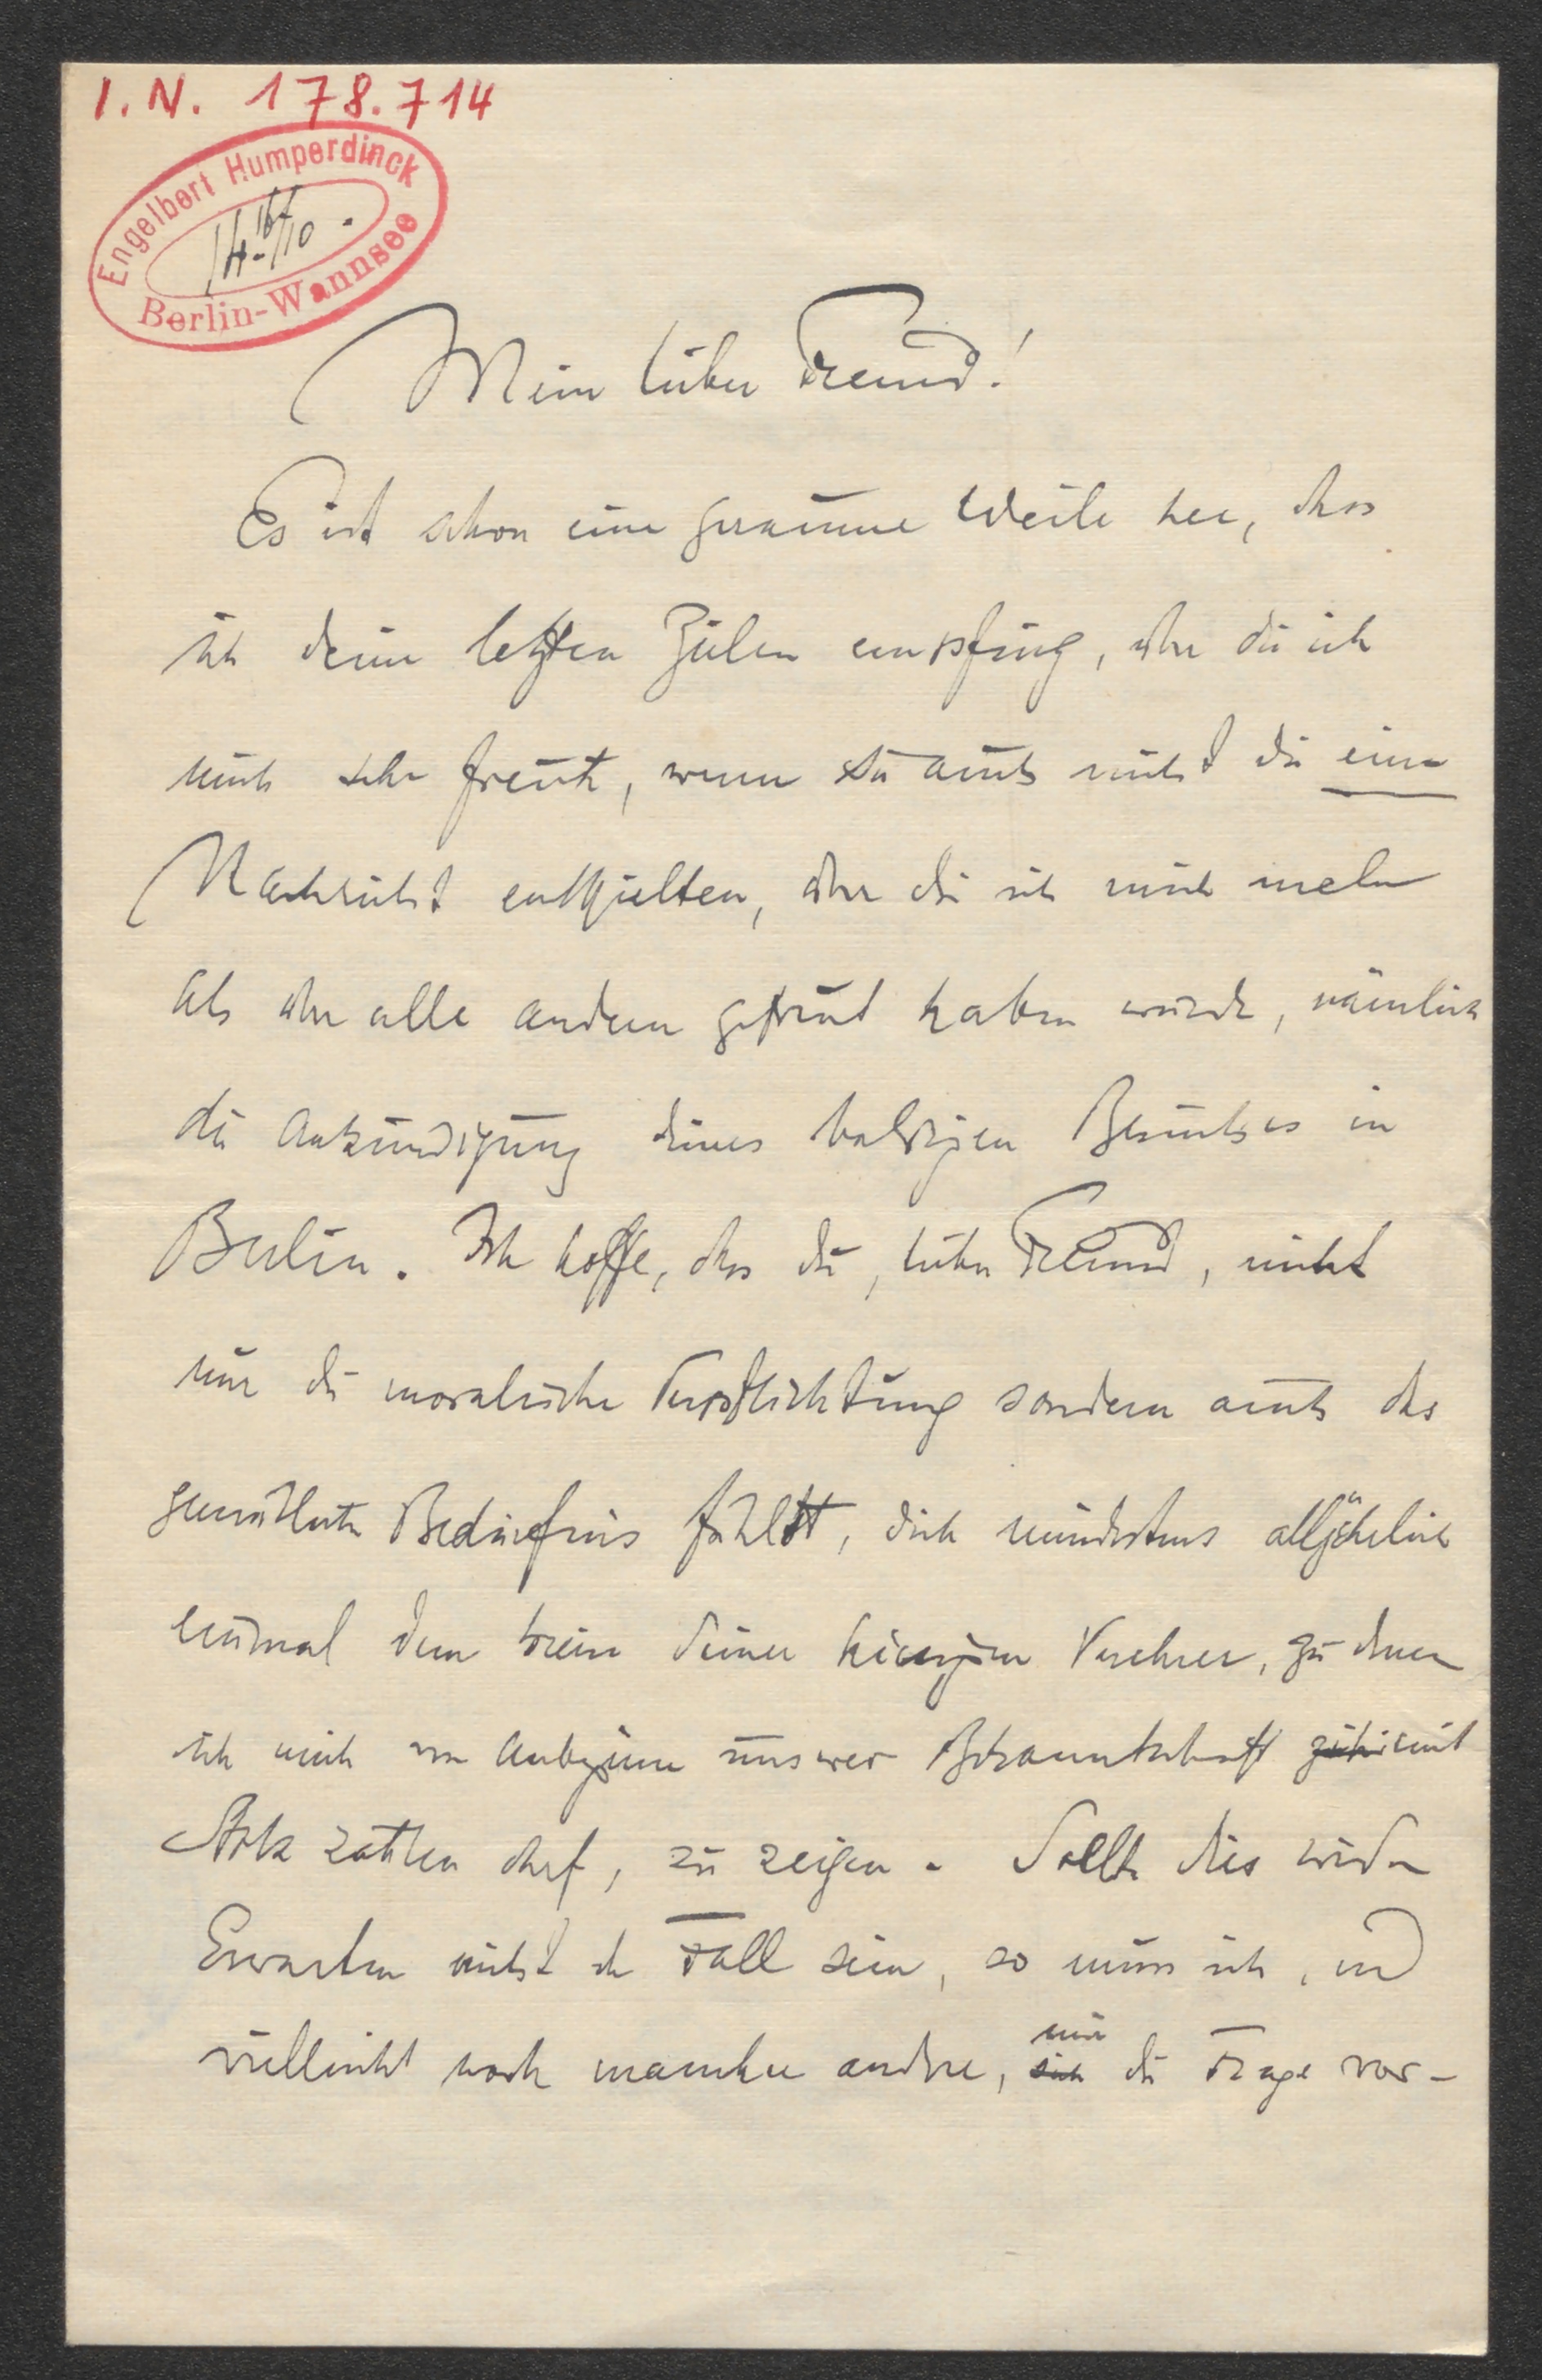 I. N. 178.714
Engelbert Humperdinck
Berlin-Wannsee
Mein lieber Freund!
Es ist schon eine geraume Weile her, dass
ich deine letzten Zeilen empfing, über die ich
mich sehr freute, wenn sie auch nicht die eine
Nachricht enthielten, über die ich mich mehr
als über alle andern gefreut haben würde, nämlich
die Ankündigung deines baldigen Besuches in
Berlin. Ich hoffe, dass du, lieber Freund, nicht
nur die moralische Verpflichtung sondern auch das
Bedürfnis fühlst, dich mindestens alljährlich
einmal dem Kreise deiner hiesigen Verehrer, zu denen
ich mich von Anbeginn unserer Bekanntschaft mit
Stolz zählen darf, zu zeigen. Sollte dies wider
Erwarten nicht der Fall sein, so muss ich, und
vielleicht noch mancher andre, sich mir die Frage vor-